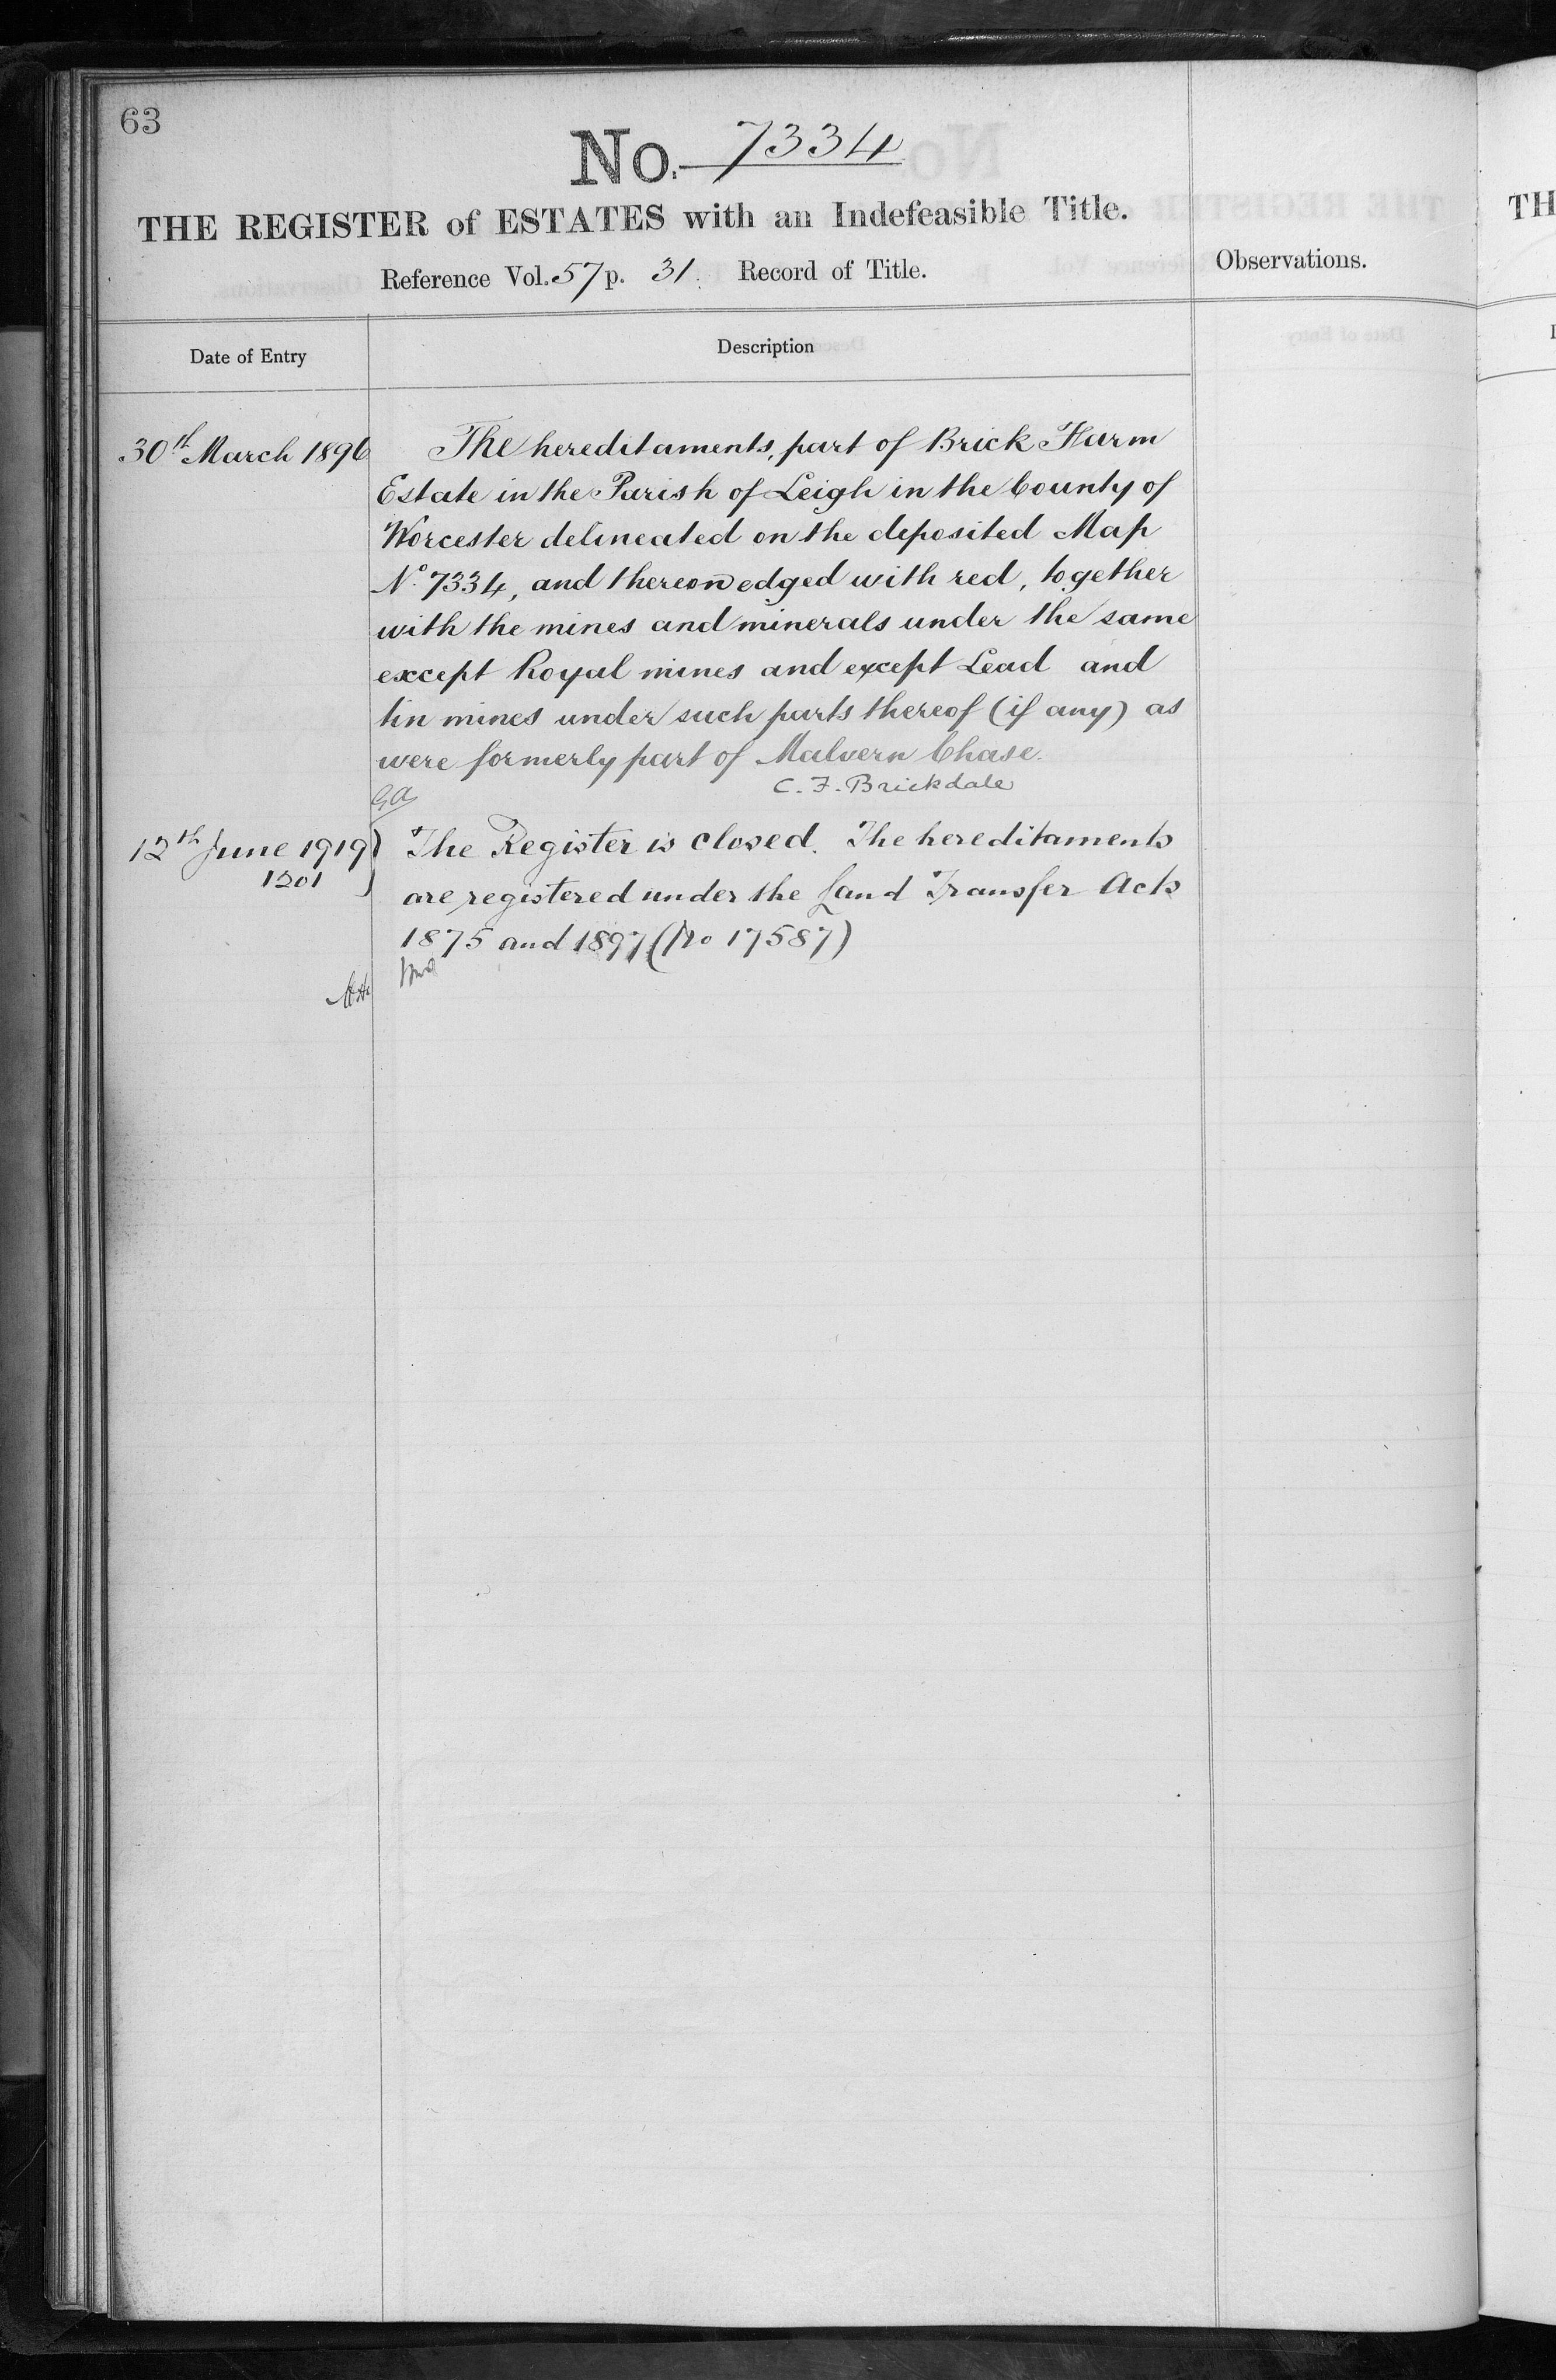 63
No. 7334
THE REGISTER of ESTATES with an Indefeasible Title.
Reference Vol. 57 p. 31. Record of Title.
Observations.
Date of Entry
Description
30th March 1896
The hereditaments, part of Brick Farm
Estate in the Parish of Leigh in the County of
Worcester delineated on the deposited Map
No. 7334, and thereon edged with red, together
with the mines and minerals under the same
except Royal mines and except Lead and
tin mines under such parts thereof (if any) as
were formerly part of Malvern Chase.
C. F. Brickdale
12th June 1919
1201
The Register is closed. The hereditaments
are registered under the Land Transfer Acts
1875 and 1897 (No 17587)
TH